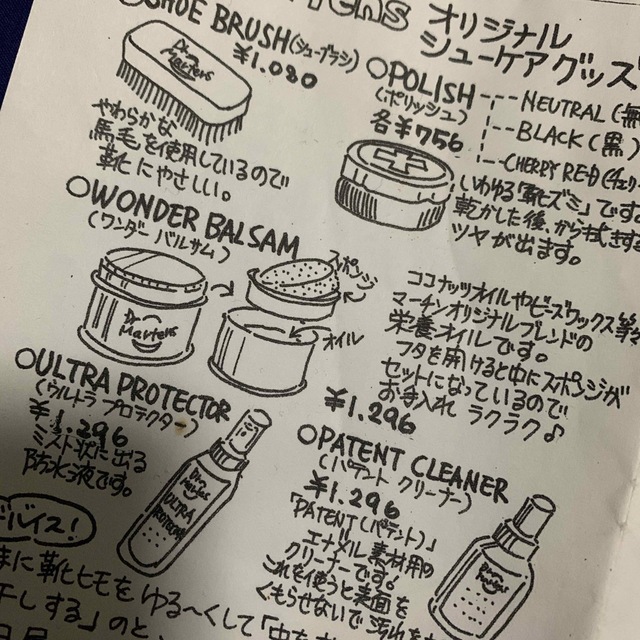 オリジナル
シューケアグッズ
SHOE BRUSH(シューブラシ)
¥1.080
Dr. Martens
やわらかな
馬毛を使用しているので
靴にやさしい。
○POLISH
(ポリッシュ)
各¥756
NEUTRAL(無
BLACK(黒)
CHERRY RED(チェリ
いわゆる「靴ズミ」です
乾かした後、から拭きす
ツヤが出ます。
○WONDER BALSAM
(ワンダー バルサム)
スポンジ
オイル
Dr. Martens
ココナッツオイルやビーズワックス等
マーチンオリジナルブレンドの
栄養オイルです。
フタを開けると中にスポンジが
セットになっているので
お手入れ ラクラク♪
¥1.296
○ULTRA PROTECTOR
(ウルトラ プロテクター)
¥1.296
ミスト状に出る
防水液です。
Dr. Martens
ULTRA
PROTECTOR
○PATENT CLEANER
(パテント クリーナー)
¥1.296
「PATENT(パテント)」
エナメル素材用の
クリーナーです。
これを使うと表面を
くもらせないで汚れを
Dr. Martens
バイス!
に靴ヒモをゆる〜くして「中を
干しする」のと、